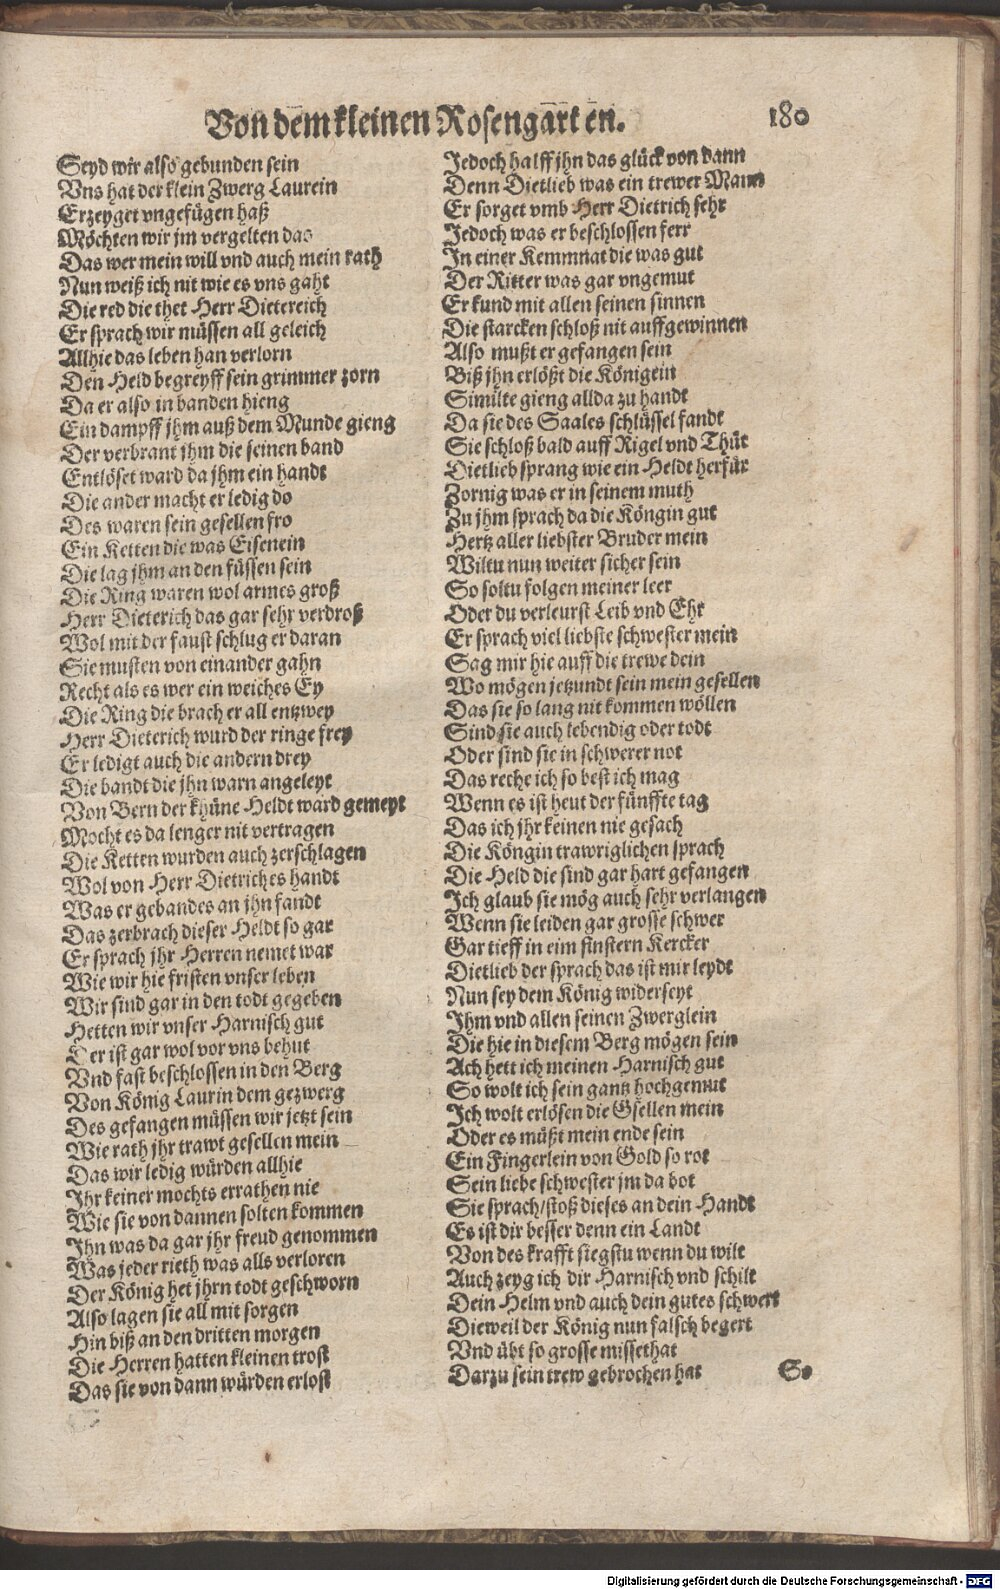 Von dem kleinen Rosengarten.
180
Seyd wir also gebunden sein
Vns hat der klein Zwerg Laurein
Erzeyget vngefügen haß
Möchten wir jm vergelten das
Das wer mein will vnd auch mein rath
Nun weiß ich nit wie es vns gaht
Die red die thet Herr Dietereich
Er sprach wir müssen all geleich
Allhie das leben han verlorn
Den Held begreyff sein grimmer zorn
Da er also in banden hieng
Ein dampff jhm auß dem Munde gieng
Der verbrant jhm die seinen band
Entlöset ward da jhm ein handt
Die ander macht er ledig do
Des waren sein gesellen fro
Ein Ketten die was Eisenein
Die lag jhm an den füssen sein
Die Ring waren wol armes groß
Herr Dieterich das gar sehr verdroß
Wol mit der faust schlug er daran
Sie musten von einander gahn
Recht als es wer ein weiches Ey
Die Ring die brach er all entzwey
Herr Dieterich wurd der ringe frey
Er ledigt auch die andern drey
Die bandt die jhn warn angeleyt
Von Bern der khüne Heldt ward gemeyt
Mocht es da lenger nit vertragen
Die Ketten wurden auch zerschlagen
Wol von Herr Dietriches handt
Was er gebandes an jhn fandt
Das zerbrach dieser Heldt so gar
Er sprach jhr Herren nemet war
Wie wir hie fristen vnser leben
Wir sind gar in den todt gegeben
Hetten wir vnser Harnisch gut
Der ist gar wol vor vns behut
Vnd fast beschlossen in den Berg
Von König Laurin dem gezwerg
Des gefangen müssen wir jetzt sein
Wie rath jhr trawt gesellen mein
Das wir ledig würden allhie
Ihr keiner mochts errathen nie
Wie sie von dannen solten kommen
Ihn was da gar jhr freud genommen
Was jeder rieth was alls verloren
Der König het jhrn todt geschworn
Also lagen sie all mit sorgen
Hin biß an den dritten morgen
Die Herren hatten kleinen trost
Das sie von dann würden erlost
Jedoch halff jhn das glück von dann
Denn Dietlieb was ein trewer Mann
Er sorget vmb Herr Dietrich sehr
Jedoch was er beschlossen ferr
In einer Kemmnat die was gut
Der Ritter was gar vngemut
Er kund mit allen seinen sinnen
Die starcken schloß nit auffgewinnen
Also mußt er gefangen sein
Biß jhn erlößt die Königein
Similte gieng allda zu handt
Da sie des Saales schlüssel fandt
Sie schloß bald auff Rigel vnd Thür
Dietlieb sprang wie ein Heldt herfür
Zornig was er in seinem muth
Zu jhm sprach da die Köngin gut
Hertz aller liebster Bruder mein
Wiltu nun weiter sicher sein
So soltu folgen meiner leer
Oder du verleurst Leib vnd Ehr
Er sprach viel liebste schwester mein
Sag mir hie auff die trewe dein
Wo mögen jetzundt sein mein gesellen
Das sie so lang nit kommen wöllen
Sind sie auch lebendig oder todt
Oder sind sie in schwerer not
Das reche ich so best ich mag
Wenn es ist heut der fünffte tag
Das ich jhr keinen nie gesach
Die Köngin trawriglichen sprach
Die Held die sind gar hart gefangen
Ich glaub sie mög auch sehr verlangen
Wenn sie leiden gar grosse schwer
Gar tieff in eim finstern Kercker
Dietlieb der sprach das ist mir leydt
Nun sey dem König widerseyt
Ihm vnd allen seinen Zwerglein
Die hie in diesem Berg mögen sein
Ach hett ich meinen Harnisch gut
So wolt ich sein gantz hochgemut
Ich wolt erlösen die Gsellen mein
Oder es müßt mein ende sein
Ein Fingerlein von Gold so rot
Sein liebe schwester jm da bot
Sie sprach/stoß dieses an dein Handt
Es ist dir besser denn ein Landt
Von des krafft siegstu wenn du wilt
Auch zeyg ich dir Harnisch vnd schilt
Dein Helm vnd auch dein gutes schwert
Dieweil der König nun falsch begert
Vnd übt so grosse missethat
Darzu sein trew gebrochen hat
So
Digitalisierung gefördert durch die Deutsche Forschungsgemeinschaft - DFG